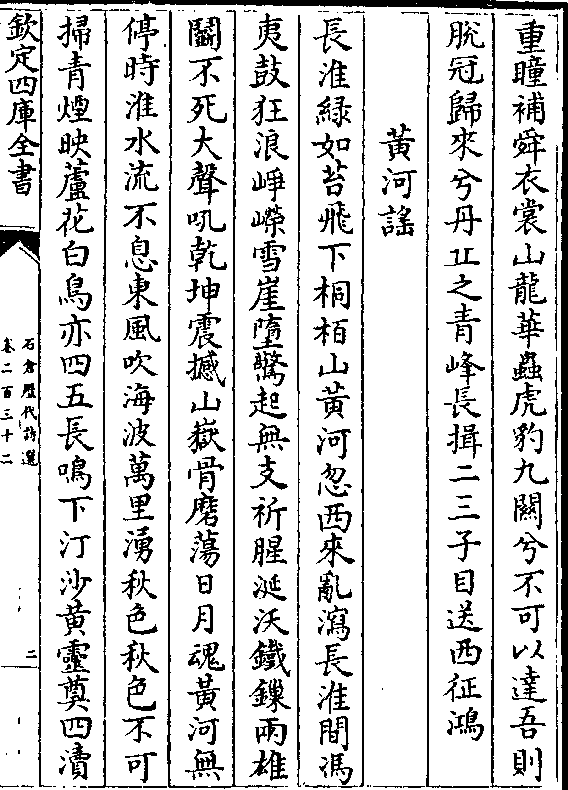 重瞳補舜衣裳山龍華蟲虎豹九關兮不可以達吾則
脫冠歸來兮丹丘之青峰長揖二三子目送西征鴻
黃河謠
長淮綠如苔飛下桐栢山黃河忽西來亂瀉長淮間馮
夷鼓狂浪崢嶸雪崖墮驚起無支祈腥涎沃鐵鏁兩雄
鬬不死大聲吼乾坤震撼山嶽骨磨蕩日月魂黃河無
停時淮水流不息東風吹海波萬里湧秋色秋色不可
掃青煙映蘆花白鳥亦四五長鳴下汀沙黃靈奠四瀆
欽定四庫全書
石倉歷代詩選
卷二百三十二
二